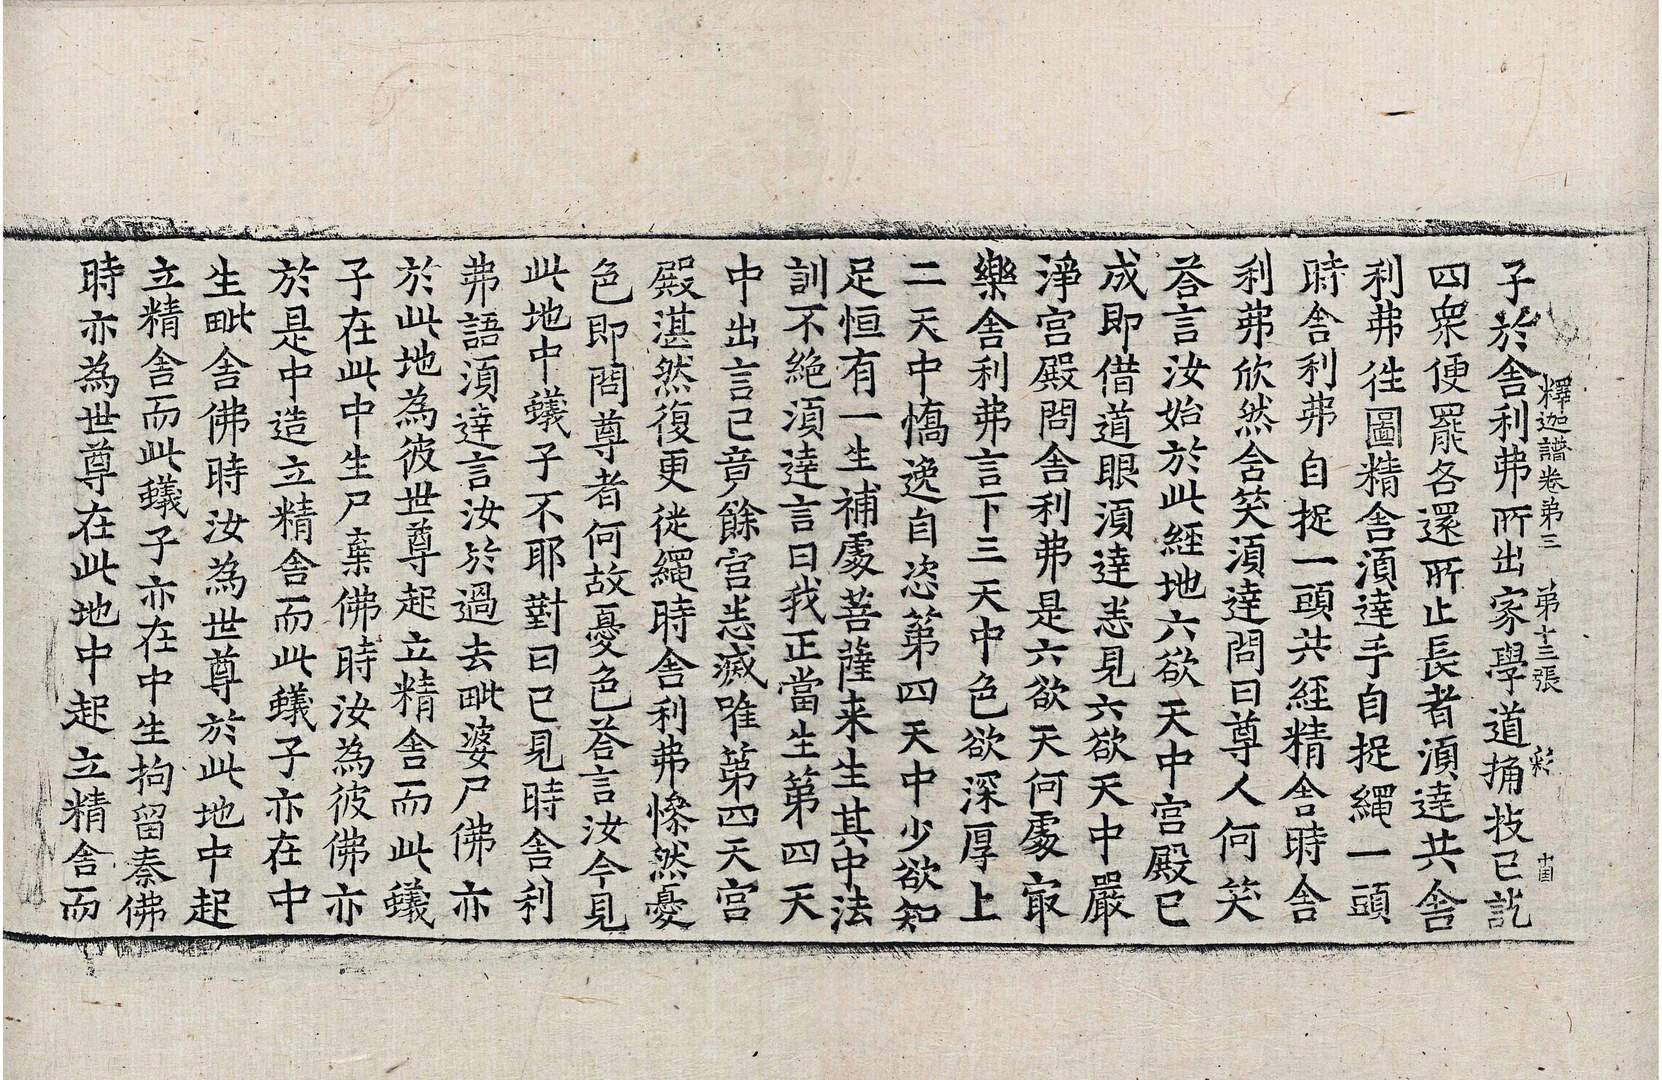 釋迦譜卷第三　第十三張　彩
子於舍利弗所出家學道捔技已訖
四衆便罷各還所止長者湏達共舍
利弗徃圖精舍湏達手自捉繩一頭
時舍利弗自捉一頭共經精舍時舍
利弗欣然含笑湏達問曰尊人何笑
荅言汝始於此經地六欲天中宮殿已
成即借道眼湏達悉見六欲天中嚴
淨宮殿問舍利弗是六欲天何處㝡
樂舍利弗言下三天中色欲深厚上
二天中憍逸自恣第四天中少欲知
足恒有一生補處菩薩来生其中法
訓不絶湏達言曰我正當生第四天
中出言已竟餘宮悉滅唯第四天宮
殿湛然復更從繩時舍利弗慘然憂
色即問尊者何故憂色荅言汝今見
此地中蟻子不耶對曰已見時舍利
弗語湏達言汝於過去毗婆尸佛亦
於此地為彼世尊起立精舍而此蟻
子在此中生尸棄佛時汝為彼佛亦
於是中造立精舍而此蟻子亦在中
生毗舍佛時汝為世尊於此地中起
立精舍而此蟻子亦在中生拘留秦佛
時亦為世尊在此地中起立精舍而